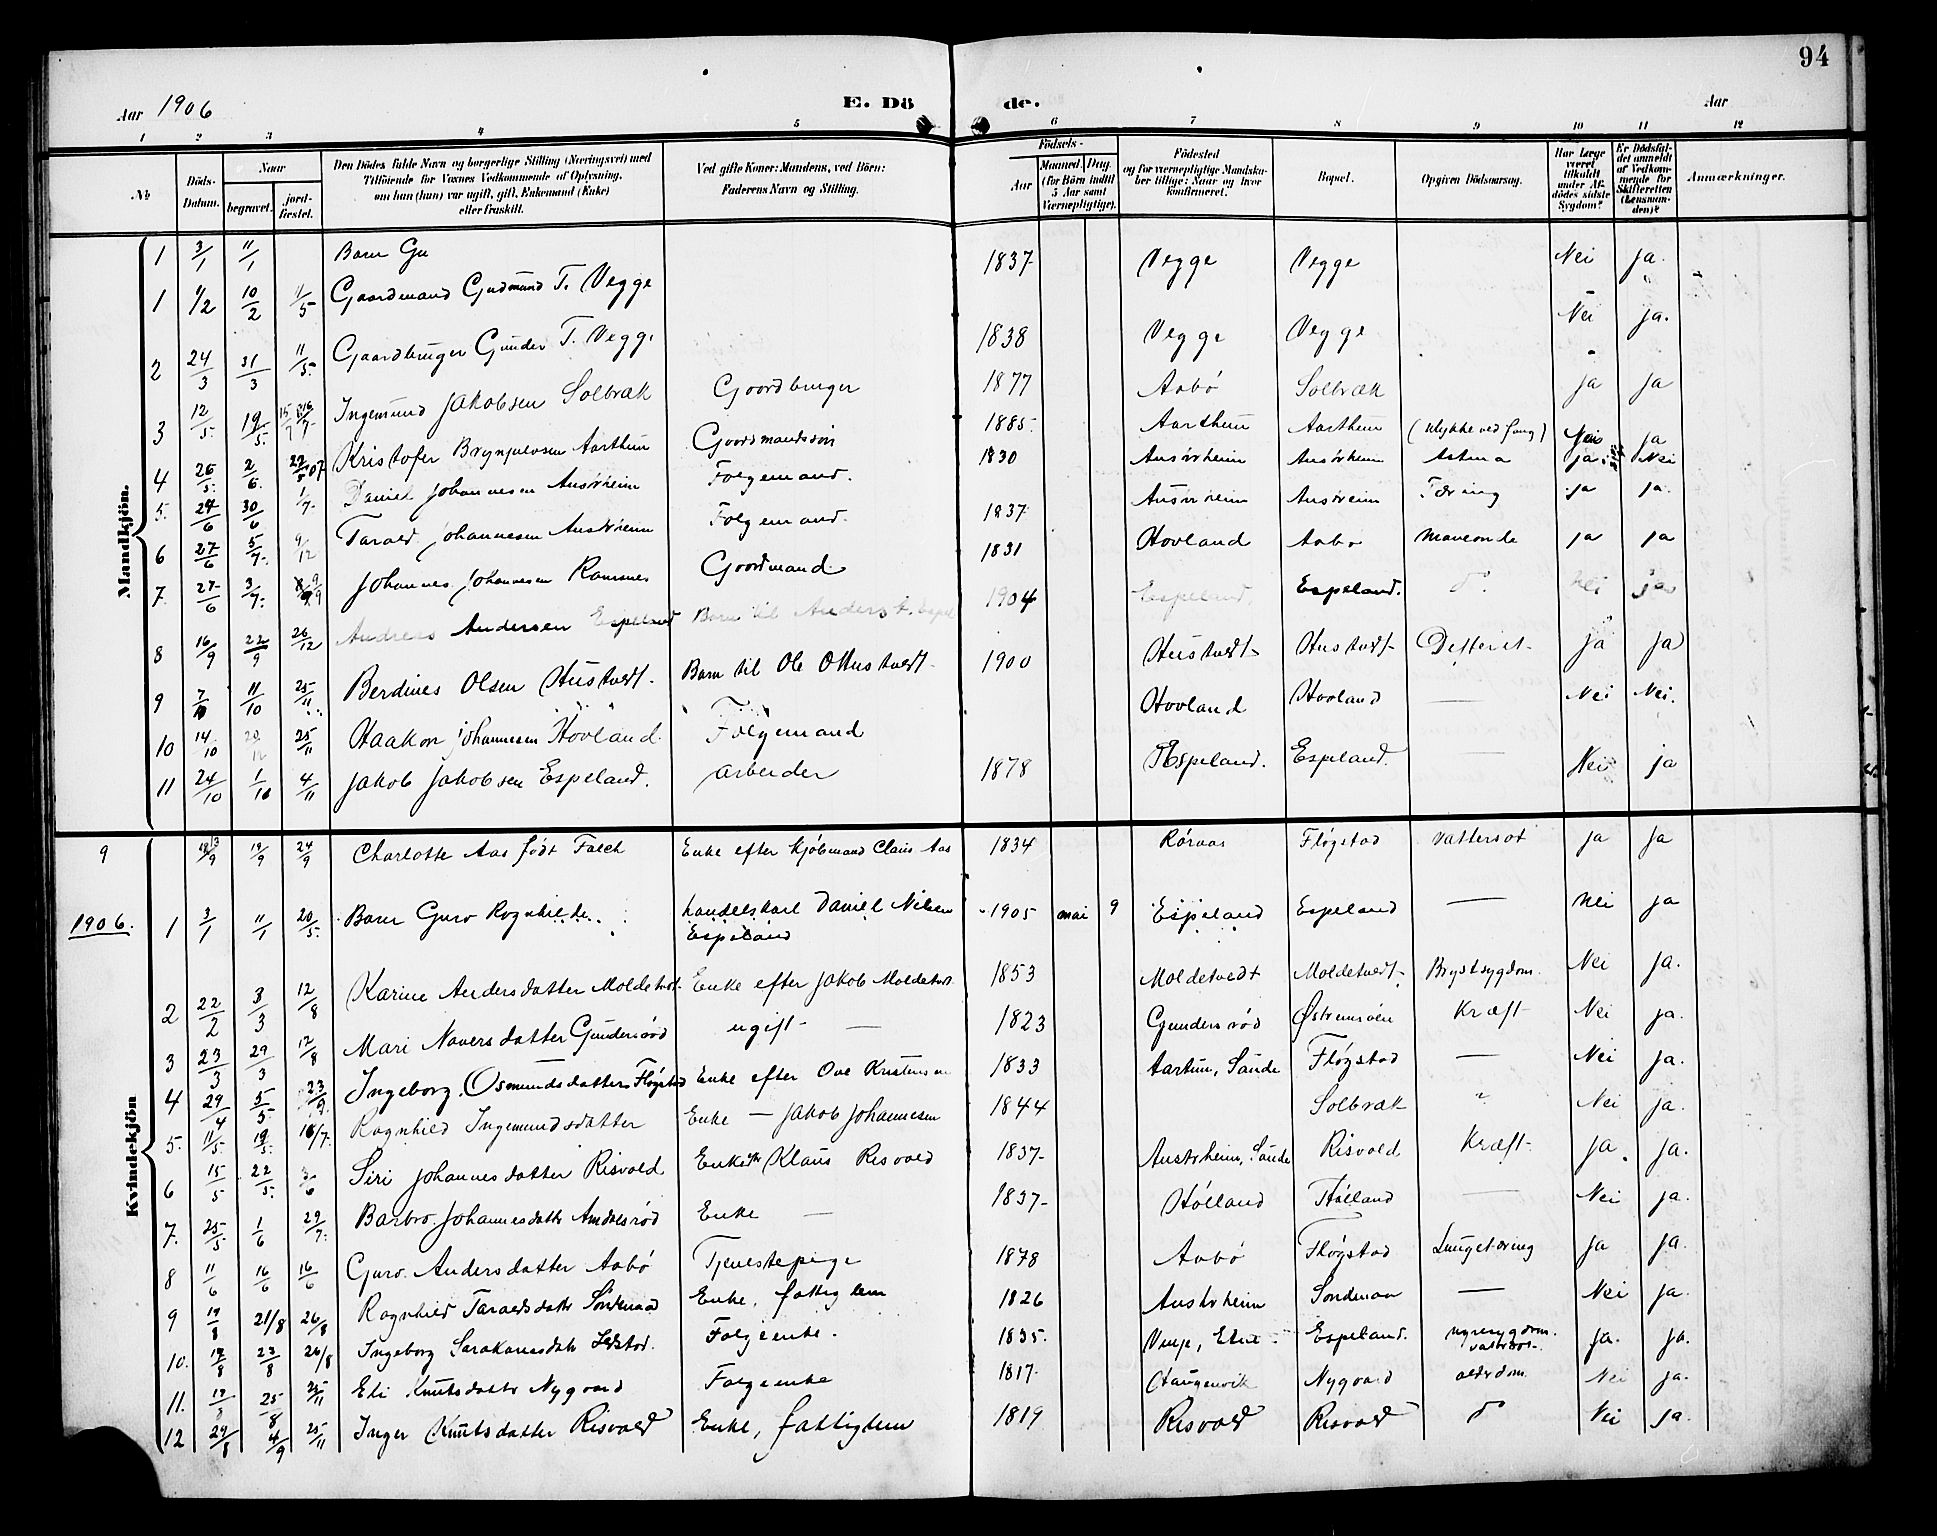 94
Aar 1906 E. Dö de. Aar
1 2 3 4 5 6 7 8 9 10 11 12
No Döds-Datum. Naar begravet. jord-fæstet. Den Dödes fulde Navn og borgerlige Stilling (Næringsvei) med Tilföiende for Voxnes Vedkommende af Oplysning, om han (hun) var ugift, gift, Enkemand (Enke) eller fraskilt. Ved gifte Koner: Mandens, ved Börn: Faderens Navn og Stilling. Födsels- Aar Maaned. Dag. (for Börn indtil 5 Aar samt Værnepligtige). Födested og for værnepligtige Mandskaber tillige: Naar og hvor konfirmeret. Bopæl. Opgiven Dödsaarsag. Har Læge været tilkaldt under Afdödes sidste Sygdom? Er Dödsfaldet anmeldt af Vedkommende for Skifteretten (Lensmanden)? Anmærkninger.
Mandkjön.
1 3/1 11/1 Barn Gu
1 1/2 10/2 11/5 Gaardmand Gudmund T. Vegge 1837 Vegge Vegge Nei ja.
2 24/3 31/3 11/5. Gaardbruger Gunder T. Vegge 1838 Vegge Vegge Nei ja.
3 12/5. 19/5. Ingemund Jakobsen Solbræk Goordbruger 1877 Aabö Solbræk ja ja
4 26/5. 2/6. 22/5 07 Kristofer Brynjulvsen Aarthun Goordmandssön 1885. Aarthun Aarthun (Ulykke ved fang) Nei ja
5. 24/6 30/6 1/7. Daniel Johannesen Ausørheim Folgemand. 1830 Ausørheim Ausørheim Astma ja Nei
6 27/6 5/7. 9/12 Tarald Johannesen Austrheim Folgemand. 1837 Ausørheim Ausørheim Tæring ja ja.
7. 27/6 3/7. 9/9 Johannes Johannesen Ramsnes Goordmand 1831 Hovland Aabø Maveonde ja ja
8 16/9 22/9 26/12 Andreas Andersen Espeland Barn til Anders 1904 Espeland. Espeland. do Nei ja
9 7/10 11/10 25/11 Berdines Olsen Hustvedt. Barn til Ole O Hustvedt. 1900 Hustvedt- Hustvedt- Defterit- ja ja
10 14/10 20/12 25/11 Haakon Johannesen Hovland Folgemand Hovland Hovland — Nei Nei.
11 24/10 1/10 4/11 Jakob Jakobsen Espeland. arbeider 1878 Espeland. Espeland. — Nei ja
Kvindekjön
9 19/9 24/9 Charlotte Aas født Falch Enke efter Kjöbmand Claus Aas 1834 Röraas Fløgstad Vattersot ja ja
1906. 1 3/1 11/1 20/5. Barn Guro Rognhilde. handelskarl Daniel Nilsen Espeland 1905 mai 9 Espeland Espeland — Nei ja
2 22/2 3/3 12/8 Karine Andersdatter Moldetvet. Enke efter Jakob Moldetvet. 1853 Moldetvedt Moldetvedt- Brystsygdom. Nei ja.
3 23/3 29/3 12/8 Mari Naversdatter Gundersrød ugift — 1823 Gundersrød Østremsøen Kræft- Nei ja.
4 29/4 5/5 23/9. Ingeborg Osmundsdatters Fløgstad Enke efter Ove Kristensen 1833 Aartun, Sande Fløgstad — Nei ja.
5. 11/5. 19/5. 16/7. Rognhild Ingemundsdatter Enke — Jakob Johannesen 1844 Solbræk " Nei ja.
6 15/5 22/5. 3/6 Siri Johannesdatter Risvold Enke eftr Klaus Risvold 1837- Austrheim, Sande Risvold Kræft- ja. ja.
7. 25/5 1/6 29/7. Barbro Johannesdatter Amdalsrød Enke — 1837- Hólland Hólland — Nei ja.
8 11/6 16/6 16/6 Guro Andersdatter Aabö Tjenestepige 1878 Aabö Fløgstad Lungetæring ja ja.
9 19/8 21/8 26/8 Rognhild Taraldsdatr Söndenaa Enke, fattiglem 1826 Austrheim Sondenaa — Nei ja.
10. 19/8 23/8 26/8 Ingeborg Folgeenke. 1835. Espeland. Nyresygdom. vattersot. ja. ja.
11. 19/8 25/8 25/11 Eli Knutsdatter Nygaard Folgeenke 1817. Haugenvik Nygaard alderdom. Nei ja.
12 29/8 4/9 25/11 Inger Knutsdatter Risvold Enke, fattiglem 1819 Risvold Risvold do Nei ja.